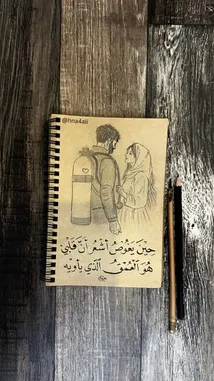 @hna4ali
حِيْنَ يَغُوْصُ أَشْعُرُ أَنَّ قَلْبِيْ
هُوَ الْعُمْقُ الَّذِي يَأْوِيْهِ